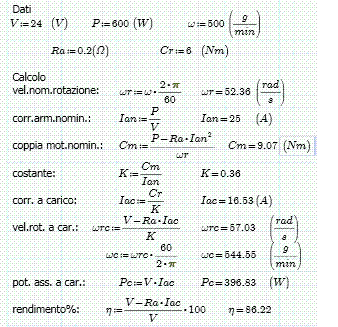 Dati
V:=24 (V) P:=600 (W) ω:=500 (g/min)
Ra:=0.2(Ω) Cr:=6 (Nm)
Calcolo
vel.nom.rotazione: ωr:=ω·2·π/60 ωr=52.36 (rad/s)
corr.arm.nomin.: Ian:=P/V Ian=25 (A)
coppia mot.nomin.: Cm:=(P-Ra·Ian²)/ωr Cm=9.07 (Nm)
costante: K:=Cm/Ian K=0.36
corr. a carico: Iac:=Cr/K Iac=16.53 (A)
vel.rot. a car.: ωrc:=(V-Ra·Iac)/K ωrc=57.03 (rad/s)
ωc:=ωrc·60/(2·π) ωc=544.55 (g/min)
pot. ass. a car.: Pc:=V·Iac Pc=396.83 (W)
rendimento%: η:=(V-Ra·Iac)/V·100 η=86.22